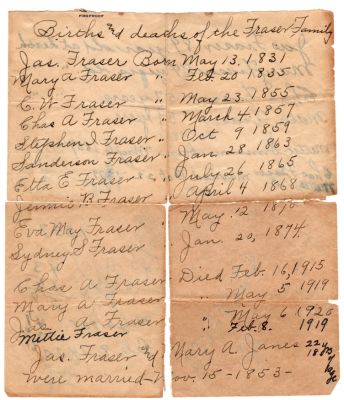 FIREPROOF
Births and deaths of the Fraser Family
Jas. Fraser Born May 13, 1831
Mary A Fraser " Feb. 20 1835
E. W Fraser " May 23. 1855
Chas A Fraser " March 4. 1857
Stephen I Fraser " Oct 9 1859
Sanderson Fraser " Jan. 28 1863
Etta E Fraser " July 26 1865
Jennie B. Fraser " April 4 1868
Eva May Fraser May. 12
Sydney S Fraser Jan. 20, 1874
Chas A Fraser Died Feb. 16, 1915
Mary A Fraser " May 5 1919
A Fraser " May 6 1920
Mettie Fraser " Feb. 8. 1919
Jas. Fraser and Mary A. Janes 22 yrs 18 yrs of age
were married - Nov. 15 - 1853 -